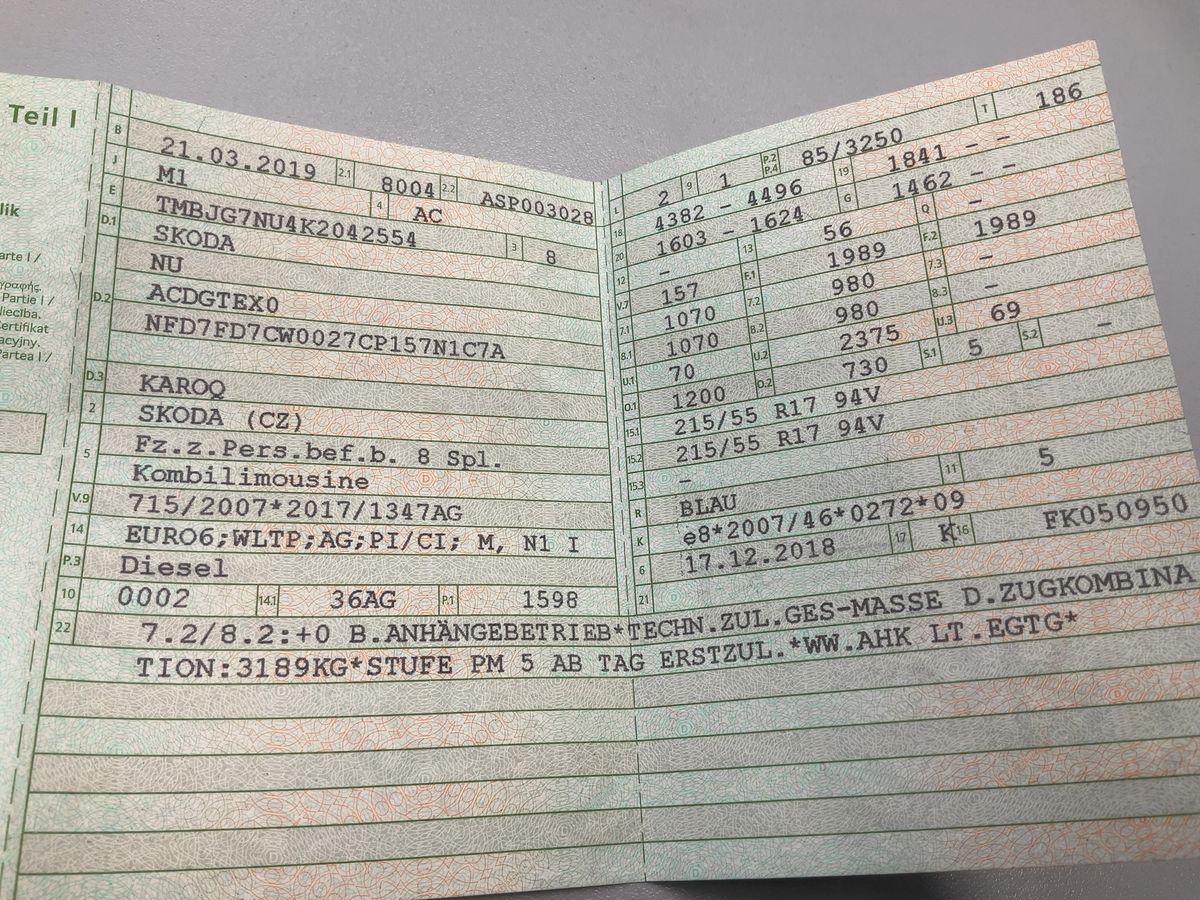 Teil I
lik
arte I /
γραφής.
Partie I /
liecība.
Certifikat
acyjny.
Partea I /
B 21.03.2019 2.1 8004 2.2 ASP003028
J M1 4 AC
E TMBJG7NU4K2042554 3 8
D.1 SKODA
NU
D.2 ACDGTEX0
NFD7FD7CW0027CP157N1C7A
D.3 KAROQ
2 SKODA (CZ)
5 Fz.z.Pers.bef.b. 8 Spl.
Kombilimousine
V.9 715/2007*2017/1347AG
14 EURO6;WLTP;AG;PI/CI; M, N1 I
P.3 Diesel
10 0002 14.1 36AG P.1 1598
L 2 9 1 P.2 P.4 85/3250 T 186
18 4382 - 4496 19 1841 - -
20 1603 - 1624 G 1462 - -
12 - 13 56 Q -
V.7 157 F.1 1989 F.2 1989
7.1 1070 7.2 980 7.3 -
8.1 1070 8.2 980 8.3 -
U.1 70 U.2 2375 U.3 69
O.1 1200 O.2 730 S.1 5 S.2 -
15.1 215/55 R17 94V
15.2 215/55 R17 94V
15.3 -
R BLAU 11 5
K e8*2007/46*0272*09
6 17.12.2018 17 K 16 FK050950
21
22 7.2/8.2:+0 B.ANHÄNGEBETRIEB*TECHN.ZUL.GES-MASSE D.ZUGKOMBINA
TION:3189KG*STUFE PM 5 AB TAG ERSTZUL.*WW.AHK LT.EGTG*